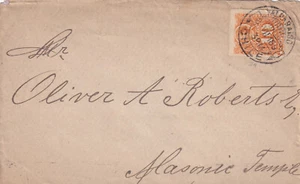 Mr.
Oliver A Roberts Esq
Masonic Temple